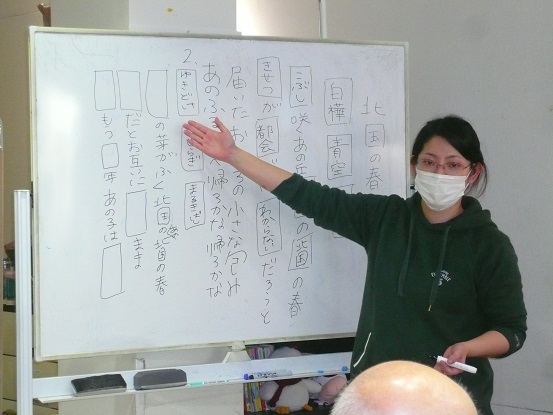 北国の春
白樺 青空
こぶし咲くあの丘北国の 北国の春
きせつが都会では わからないだろうと
届いたおふくろの小さな包み
あのふるさとへ帰ろかな 帰ろかな
2.
ゆきどけ せせらぎ まるきばし
の芽がふく 北国の 北国の春
だとお互いに まま
もう 年 あの子は